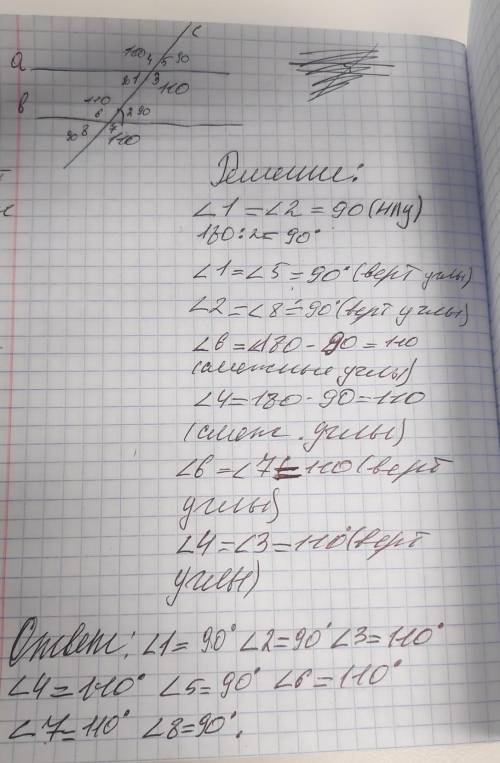 c
a 110 4 5 90
90 1 3 110
в 110
6 2 90
90 8 7 110
Решение:
∠1=∠2=90(НЛУ)
180:2=90°
∠1=∠5=90°(верт углы)
∠2=∠8=90°(верт углы)
∠6=∠180-90=110
(смежные углы)
∠4=180-90=110
(смеж. углы)
∠6=∠7=110(верт
углы)
∠4=∠3=110°(верт
углы)
Ответ: ∠1=90° ∠2=90° ∠3=110°
∠4=110° ∠5=90° ∠6=110°
∠7=110° ∠8=90°.